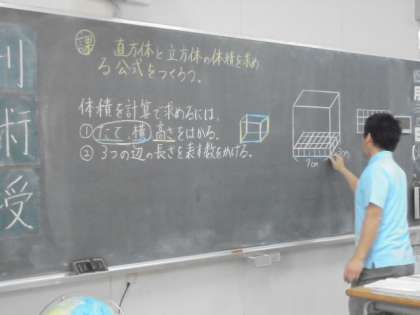 刂
術
受
課 直方体と立方体の体積を求め
る公式をつくろう。
体積を計算で求めるには、
①たて、横、高さをはかる。
②3つの辺の長さを表す数をかける。
7cm